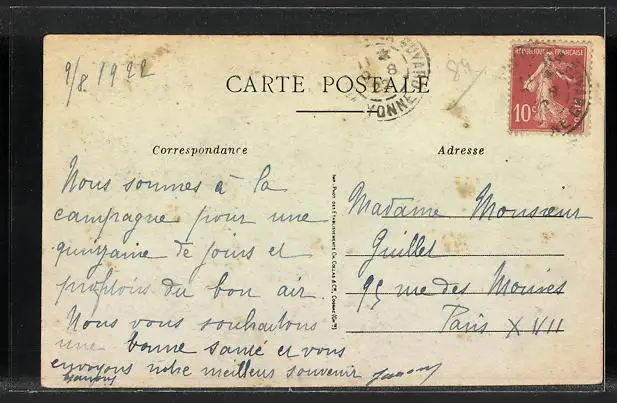 9/8 1922
89
CARTE POSTALE
YONNE
REPUBLIQUE FRANÇAISE
10c
Correspondance
Adresse
Nous sommes à la
campagne pour une
quinzaine de jours et
profitons du bon air
Nous vous souhaitons
une bonne santé et vous
envoyons notre meilleur souvenir
Madame Monsieur
Guillet
95 rue des Moines
Paris XVII